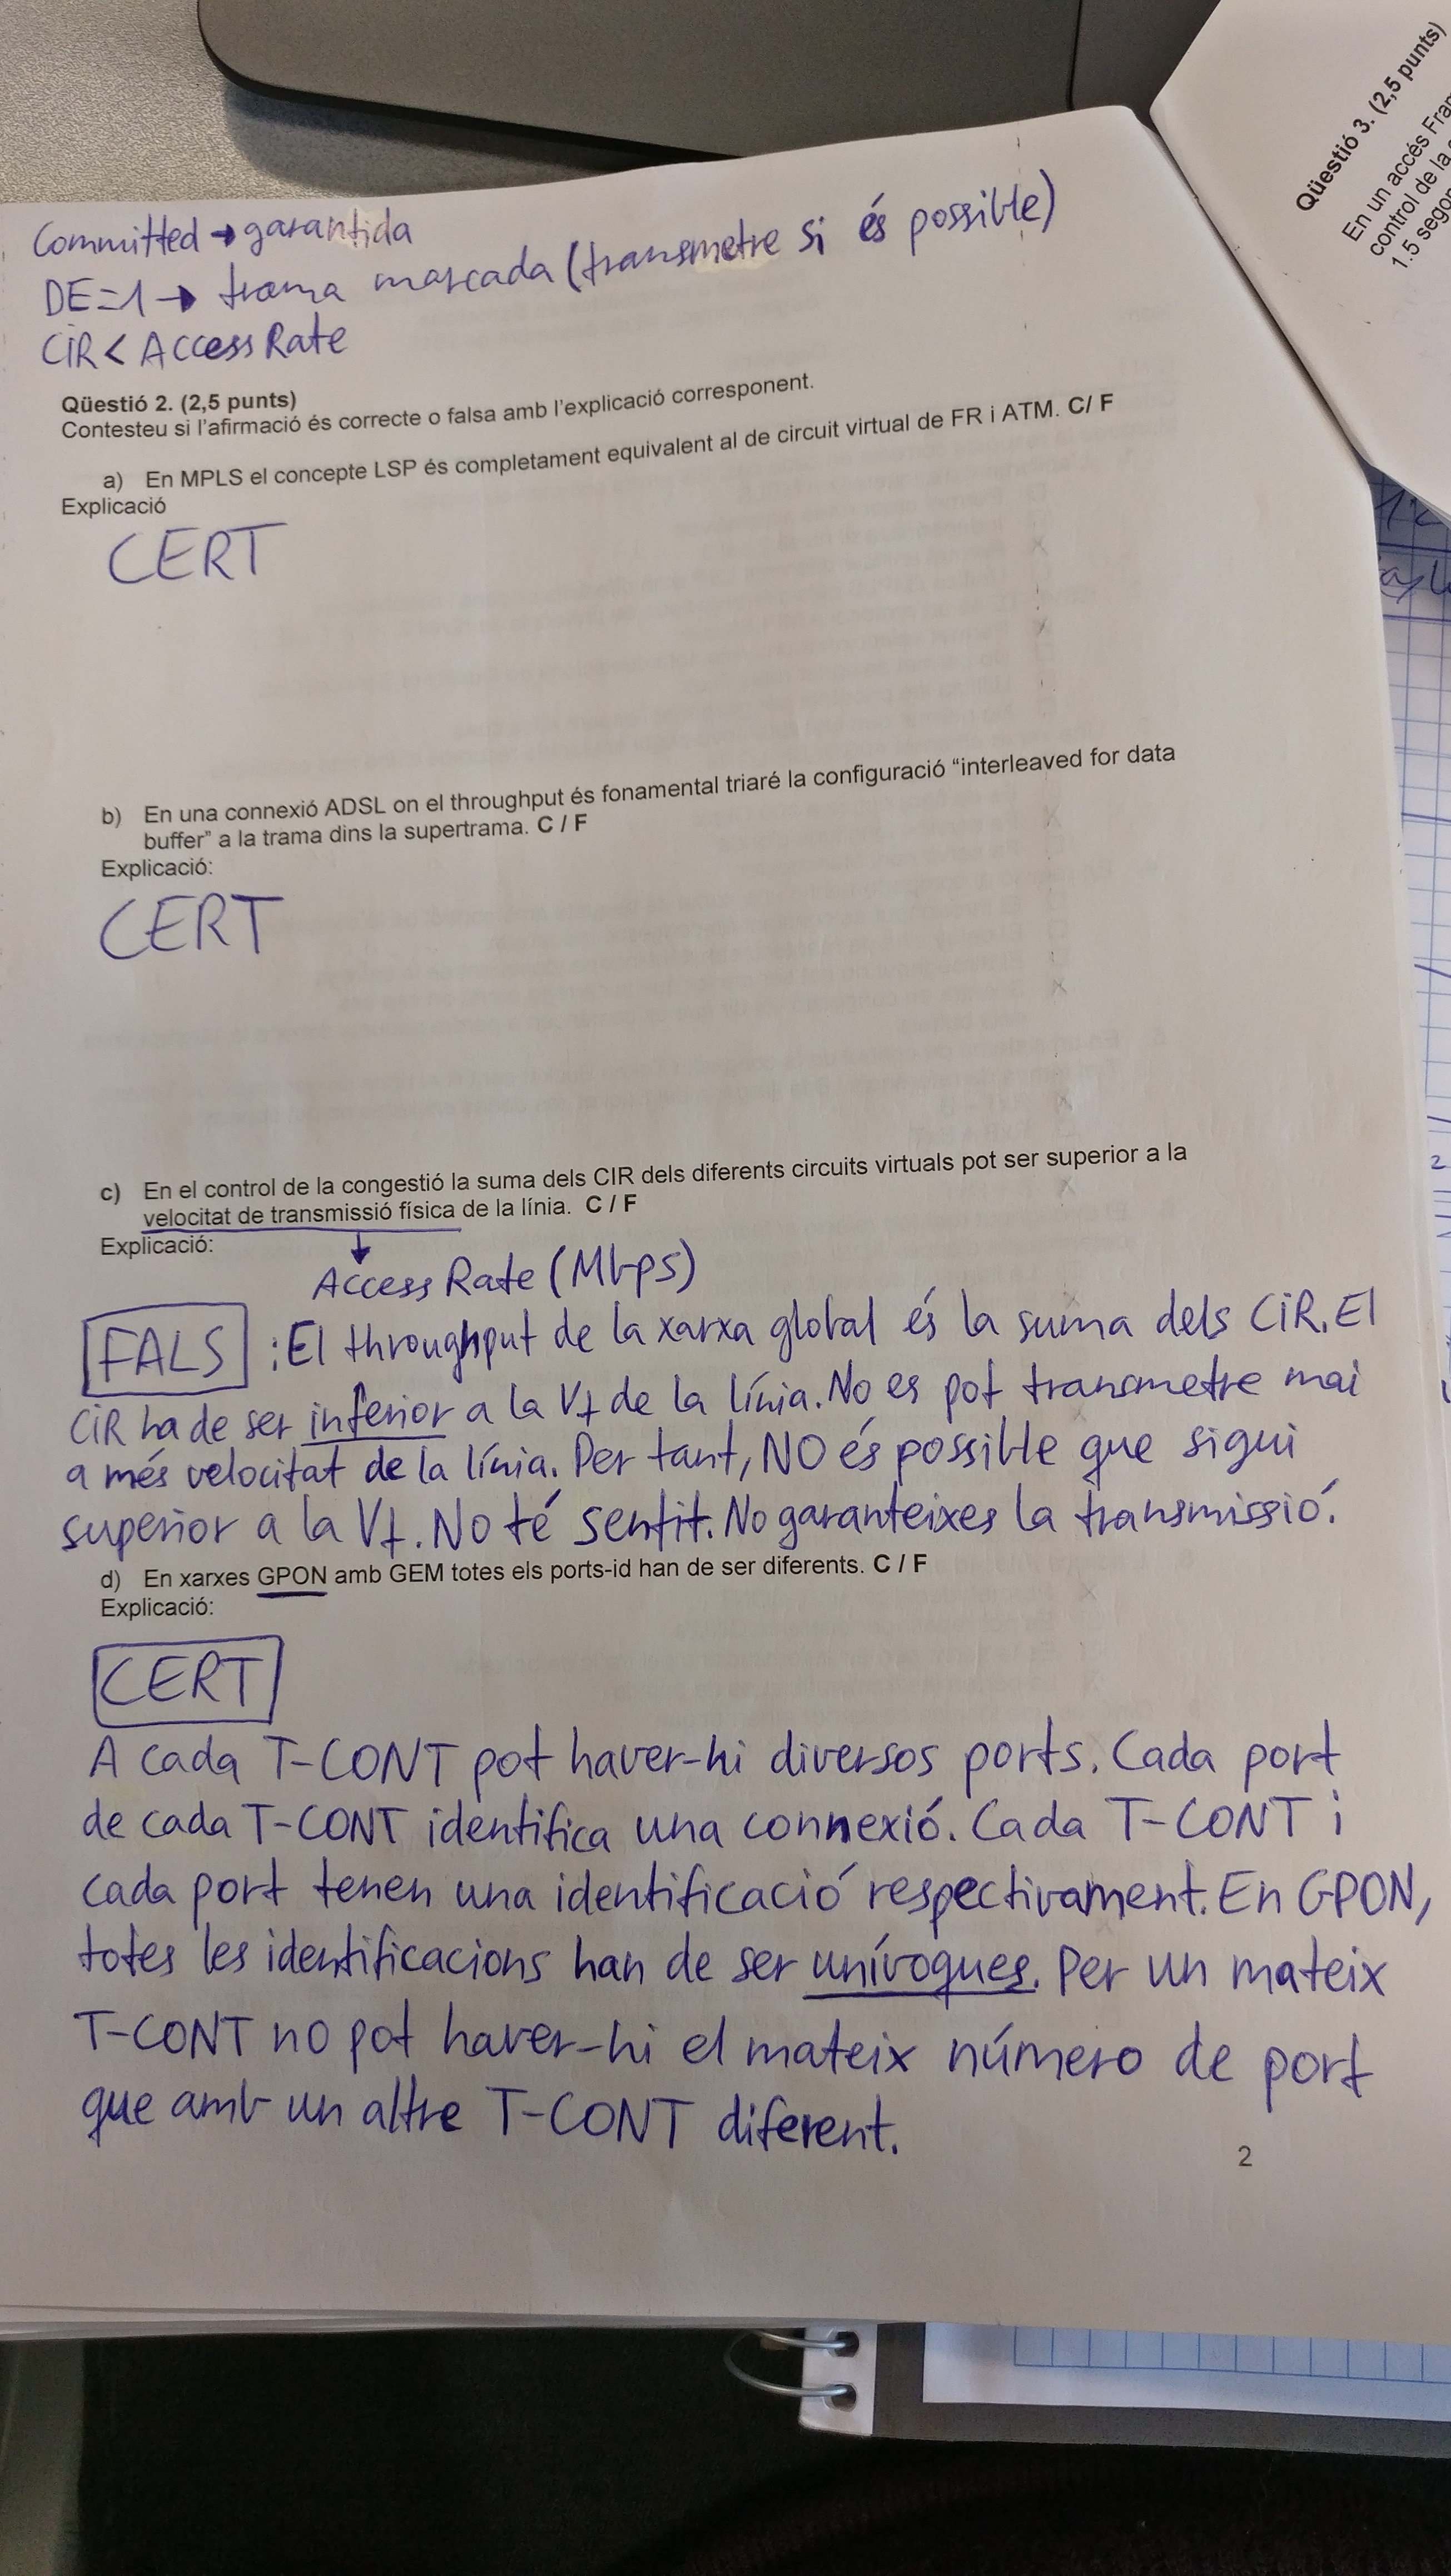 Committed → garantida
DE=1 → trama marcada (transmetre si és possible)
CiR < Access Rate
Qüestió 2. (2,5 punts)
Contesteu si l'afirmació és correcte o falsa amb l'explicació corresponent.
a) En MPLS el concepte LSP és completament equivalent al de circuit virtual de FR i ATM. C/ F
Explicació
CERT
b) En una connexió ADSL on el throughput és fonamental triaré la configuració “interleaved for data
buffer” a la trama dins la supertrama. C / F
Explicació:
CERT
c) En el control de la congestió la suma dels CIR dels diferents circuits virtuals pot ser superior a la
velocitat de transmissió física de la línia. C / F
Explicació:
Access Rate (Mbps)
FALS : El throughput de la xarxa global és la suma dels CiR. El
CiR ha de ser inferior a la Vt de la línia. No es pot transmetre mai
a més velocitat de la línia. Per tant, NO és possible que sigui
superior a la Vt. No té sentit. No garanteixes la transmissió.
d) En xarxes GPON amb GEM totes els ports-id han de ser diferents. C / F
Explicació:
CERT
A cada T-CONT pot haver-hi diversos ports. Cada port
de cada T-CONT identifica una connexió. Cada T-CONT i
cada port tenen una identificació respectivament. En GPON,
totes les identificacions han de ser unívoques. Per un mateix
T-CONT no pot haver-hi el mateix número de port
que amb un altre T-CONT diferent.
2
Qüestió 3. (2,5 punts)
En un accés
control de la
1.5